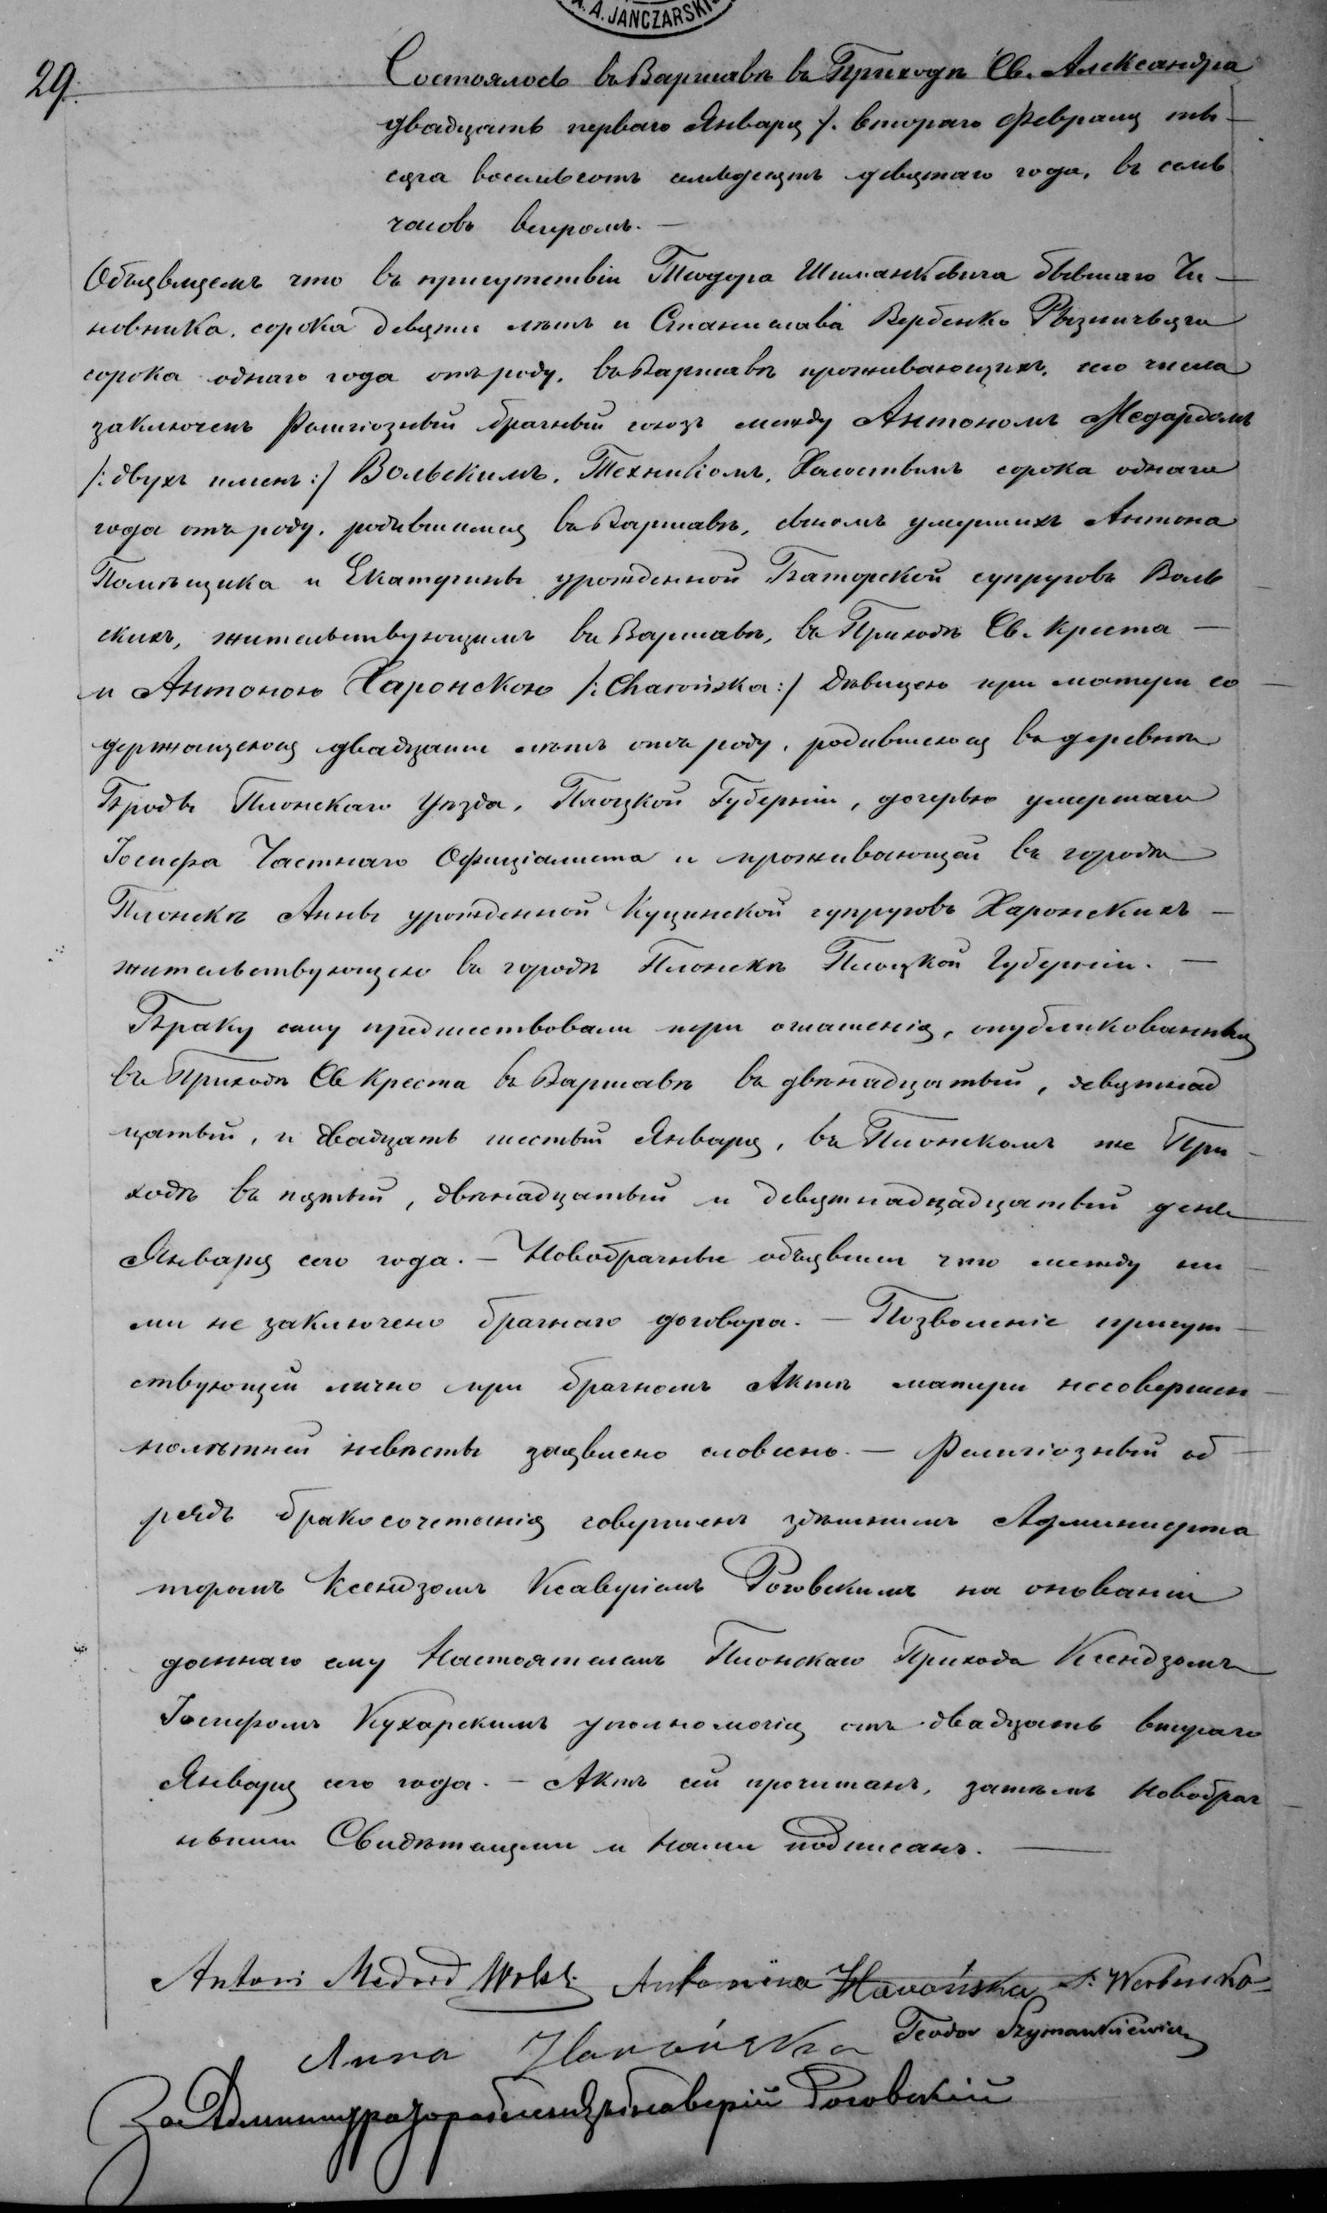 A. JANCZARSKI
29.
Состоялось въ Варшавѣ въ Приходѣ Св. Александра
двадцать перваго Января /. втораго Февраля ты-
сяча восемьсотъ семьдесятъ девятаго года, въ семь
часовъ вечеромъ. —
Объявляемъ что въ присутствіи Теодора Шиманкевича бывшаго Чи-
новника, сорока девяти лѣтъ и Станислава Вербенко
сорока однаго года отъ роду, въ Варшавѣ проживающихъ, сего числа
заключенъ Религіозный брачный союзъ между Антономъ Медардомъ
/: двухъ именъ :/ Вольскимъ, Техникомъ, Холостымъ сорока однаго
года отъ роду, родившимся въ Варшавѣ, сыномъ умершихъ Антона
Помѣщика и Екатерины урожденной Баторской супруговъ Воль
скихъ, жительствующимъ въ Варшавѣ, въ Приходѣ Св. Креста —
и Антоною Харонскою /: Charońska :/ Дѣвицею при матери со-
держащеюся двадцати лѣтъ отъ роду, родившеюся въ деревнѣ
Броды Плонскаго Уѣзда, Плоцкой Губерніи, дочерью умершаго
Іосифа Частнаго Офиціалиста и проживающей въ городѣ
Плонскѣ Анны урожденной Куцинской супруговъ Харонскихъ —
жительствующею въ городѣ Плонскѣ Плоцкой Губерніи. —
Браку сему предшествовали три оглашенія, опубликованныя
въ Приходѣ Св Креста въ Варшавѣ въ двѣнадцатый, девятнад
цатый, и двадцать шестый Января, въ Плонскомъ же При-
ходѣ въ пятый, двѣнадцатый и девятнадцадцатый день
Января сего года. — Новобрачные объявили что между ни-
ми не заключено брачнаго договора. — Позволеніе присут-
ствующей лично при брачномъ Актѣ матери несовершен-
нолѣтней невѣсты заявлено словесно. — Религіозный об-
рядъ бракосочетанія совершенъ здѣшнимъ Администра
торомъ Ксендзомъ Ксаверіемъ Роговскимъ на основаніи
даннаго ему Настоятелемъ Плонскаго Прихода Ксендзомъ
Іосифомъ Кухарскимъ уполномочія отъ двадцать втораго
Января сего года. — Актъ сей прочитанъ, затѣмъ Новобрач-
ными Свидѣтелями и Нами подписанъ. —
Antoni Medard Wolski Antonina Harońska S. Werbenko
Anna Harońska Teodor Szymankiewicz
За Администратора Ксендзъ Ксаверій Роговскій